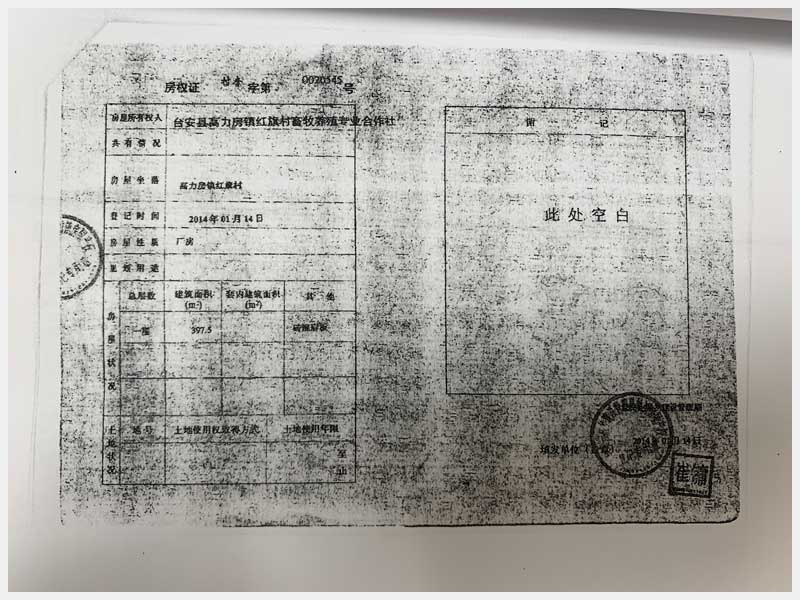 房权证 字第 0020545 号
房屋所有权人 台安县高力房镇红旗村畜牧养殖专业合作社
共有情况
房屋坐落 高力房镇红旗村
登记时间 2014年01月14日
房屋性质 厂房
规划用途
房屋状况
总层数 建筑面积(m²) 套内建筑面积(m²) 其他
一层 397.5
土地状况
地号 土地使用权取得方式 土地使用年限
至
止
附 记
此处空白
填发单位
2014年01月14日